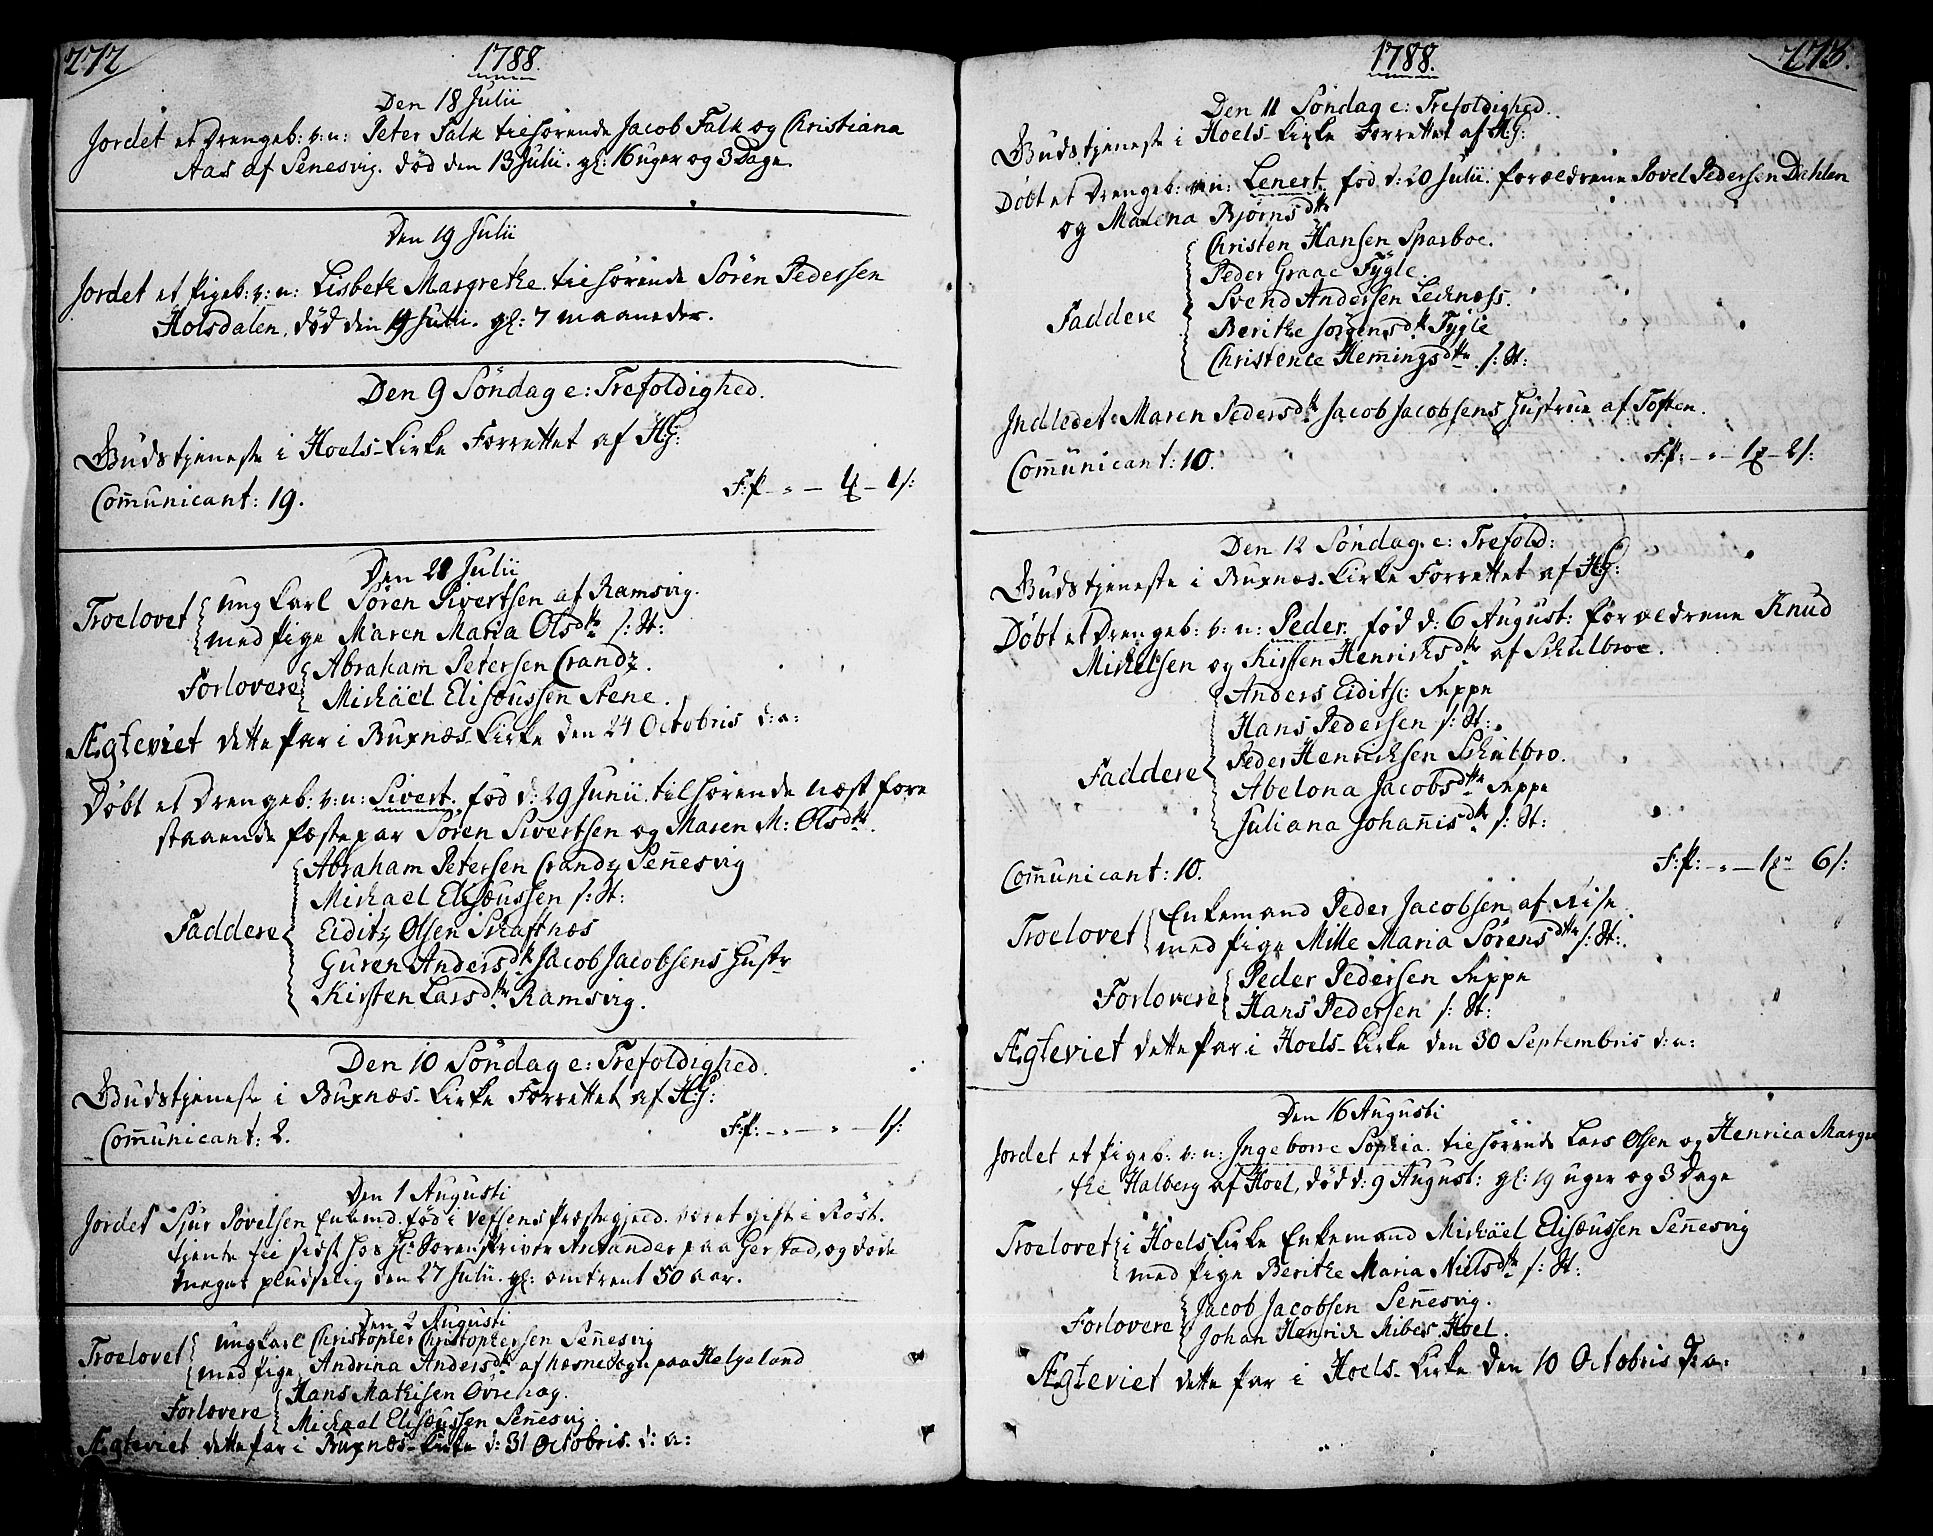 272
1788.
Den 18 Julii
Jordet et Drengeb: v: n: Peter Falk tilhørende Jacob Falk og Christiana
Aas af Senesvig. død den 13 Julii. gl: 16 uger og 3 Dage.
Den 19 Julii
Jordet et Pigeb: v: n: Lisbeth Margrethe tilhørende Sören Pedersen
Holsdalen, død den Julii. gl: 7 maaneder.
Den 9 Söndag e: Trefoldighed.
Gudstjeneste i Hoels-Kirke Forrettet af HG:
Communicant: 19.
F:P - " - 4 - 1 s:
Den 28 Julii
Troelovet ung karl Sören Sivertsen af Ramsvig.
med Pige Maren Maria Olsdtr s: St:
Forlovere Abraham Petersen Crandz.
Michäel Elisæussen Stene.
Ægteviet dette Par i Buxnæs-Kirke den 24 Octobris d: a:
Döbt et Drengeb: v: n: Sivert. fød d: 29 Junii. tilhørende næst fore
staaende fæstepar Sören Sivertsen og Maren M: Olsdtr.
Faddere Abraham Petersen Crandz Senesvig
Michael Elisæussen s: St:
Eiditz Olsen Skaftnæs
Guren Andersdtr Jacob Jacobsens Hustr
Kirsten Larsdtr Ramsvig.
Den 10 Söndag e: Trefoldighed.
Gudstjeneste i Buxnæs-Kirke Forrettet af HG:
Communicant: 2.
F:P: - " - " - 1 s:
Den 1 Augusti
Jordet Sjur Povelsen Enkemd. född i Vefsens Præstegjeld. været gift i Röst.
tjente til sidst hos Hr: Sorenskriver Antander paa Gerstad, og døde
meget pludselig den 27 Julii. gl: omtrent 50 aar.
Den 2 Augusti
Troelovet ungkarl Christopher Christophersen Senesvig
med Pige Andrina Andersdtr af hæsne Sogn paa Helgeland
Forlovere Hans Mathisen Övrehag.
Michael Elisæussen Senesvig.
Ægteviet dette Par i Buxnæs-Kirke d: 31 Octobris. d: a:
273.
1788.
Den 11 Söndag e: Trefoldighed.
Gudstjeneste i Hoels-Kirke Forrettet af HG:
Döbt et Drengeb: v: n: Lenert. fød d: 20 Julii. forældrene Povel Pedersen Dahlen
og Malena Bjørnsdtr
Faddere Christen Hansen Sparboe.
Peder Graae Fygle.
Svend Andersen Lecknæss.
Berithe Jorgensdtr Fygle
Christence Hemingsdtr s: St:
Indledet Maren Pedersdtr Jacob Jacobsens Hustrue af Toften.
Communicant: 10.
F:P: - " - 1 - 2 s:
Den 12 Söndag. e: Trefold:
Gudstjeneste i Buxnæs-Kirke Forrettet af HG:
Döbt et Drengeb: v: n: Peder. fød d: 6 August: forældrene Knud
Mickelsen og Kirsten Henrichsdtr af Skulbroe.
Faddere Anders Eidits: Seppe
Hans Pedersen s: St:
Peder Henrichsen Skulbro.
Abelona Jacobsdtr Seppe
Juliana Johannisdtr s: St:
Communicant: 10.
F:P: - " - 1 - 6 s:
Troelovet Enkemand Peder Jacobsen af Rise
med Pige Mille Maria Sørensdtr s: St:
Forlovere Peder Pedersen Seppe
Hans Pedersen s: St:
Ægteviet dette Par i Hoels-Kirke den 30 Septembris d: a:
Den 16 Augusti
Jordet et Pigeb: v: n: Ingeborre Sophia tilhørende Lars Olsen og Henrica Margre
the Halberg af Hoel, død d: 9 August: gl: 19 uger og 3 Dage
Troelovet i Hoels-Kirke Enkemand Michäel Elisæussen Senesvig
med Pige Berithe Maria Nielsdtr s: St:
Forlovere Jacob Jacobsen Senesvig.
Johan Henrich Ribes Hoel.
Ægteviet dette Par i Hoels-Kirke den 10 Octobris d: a: